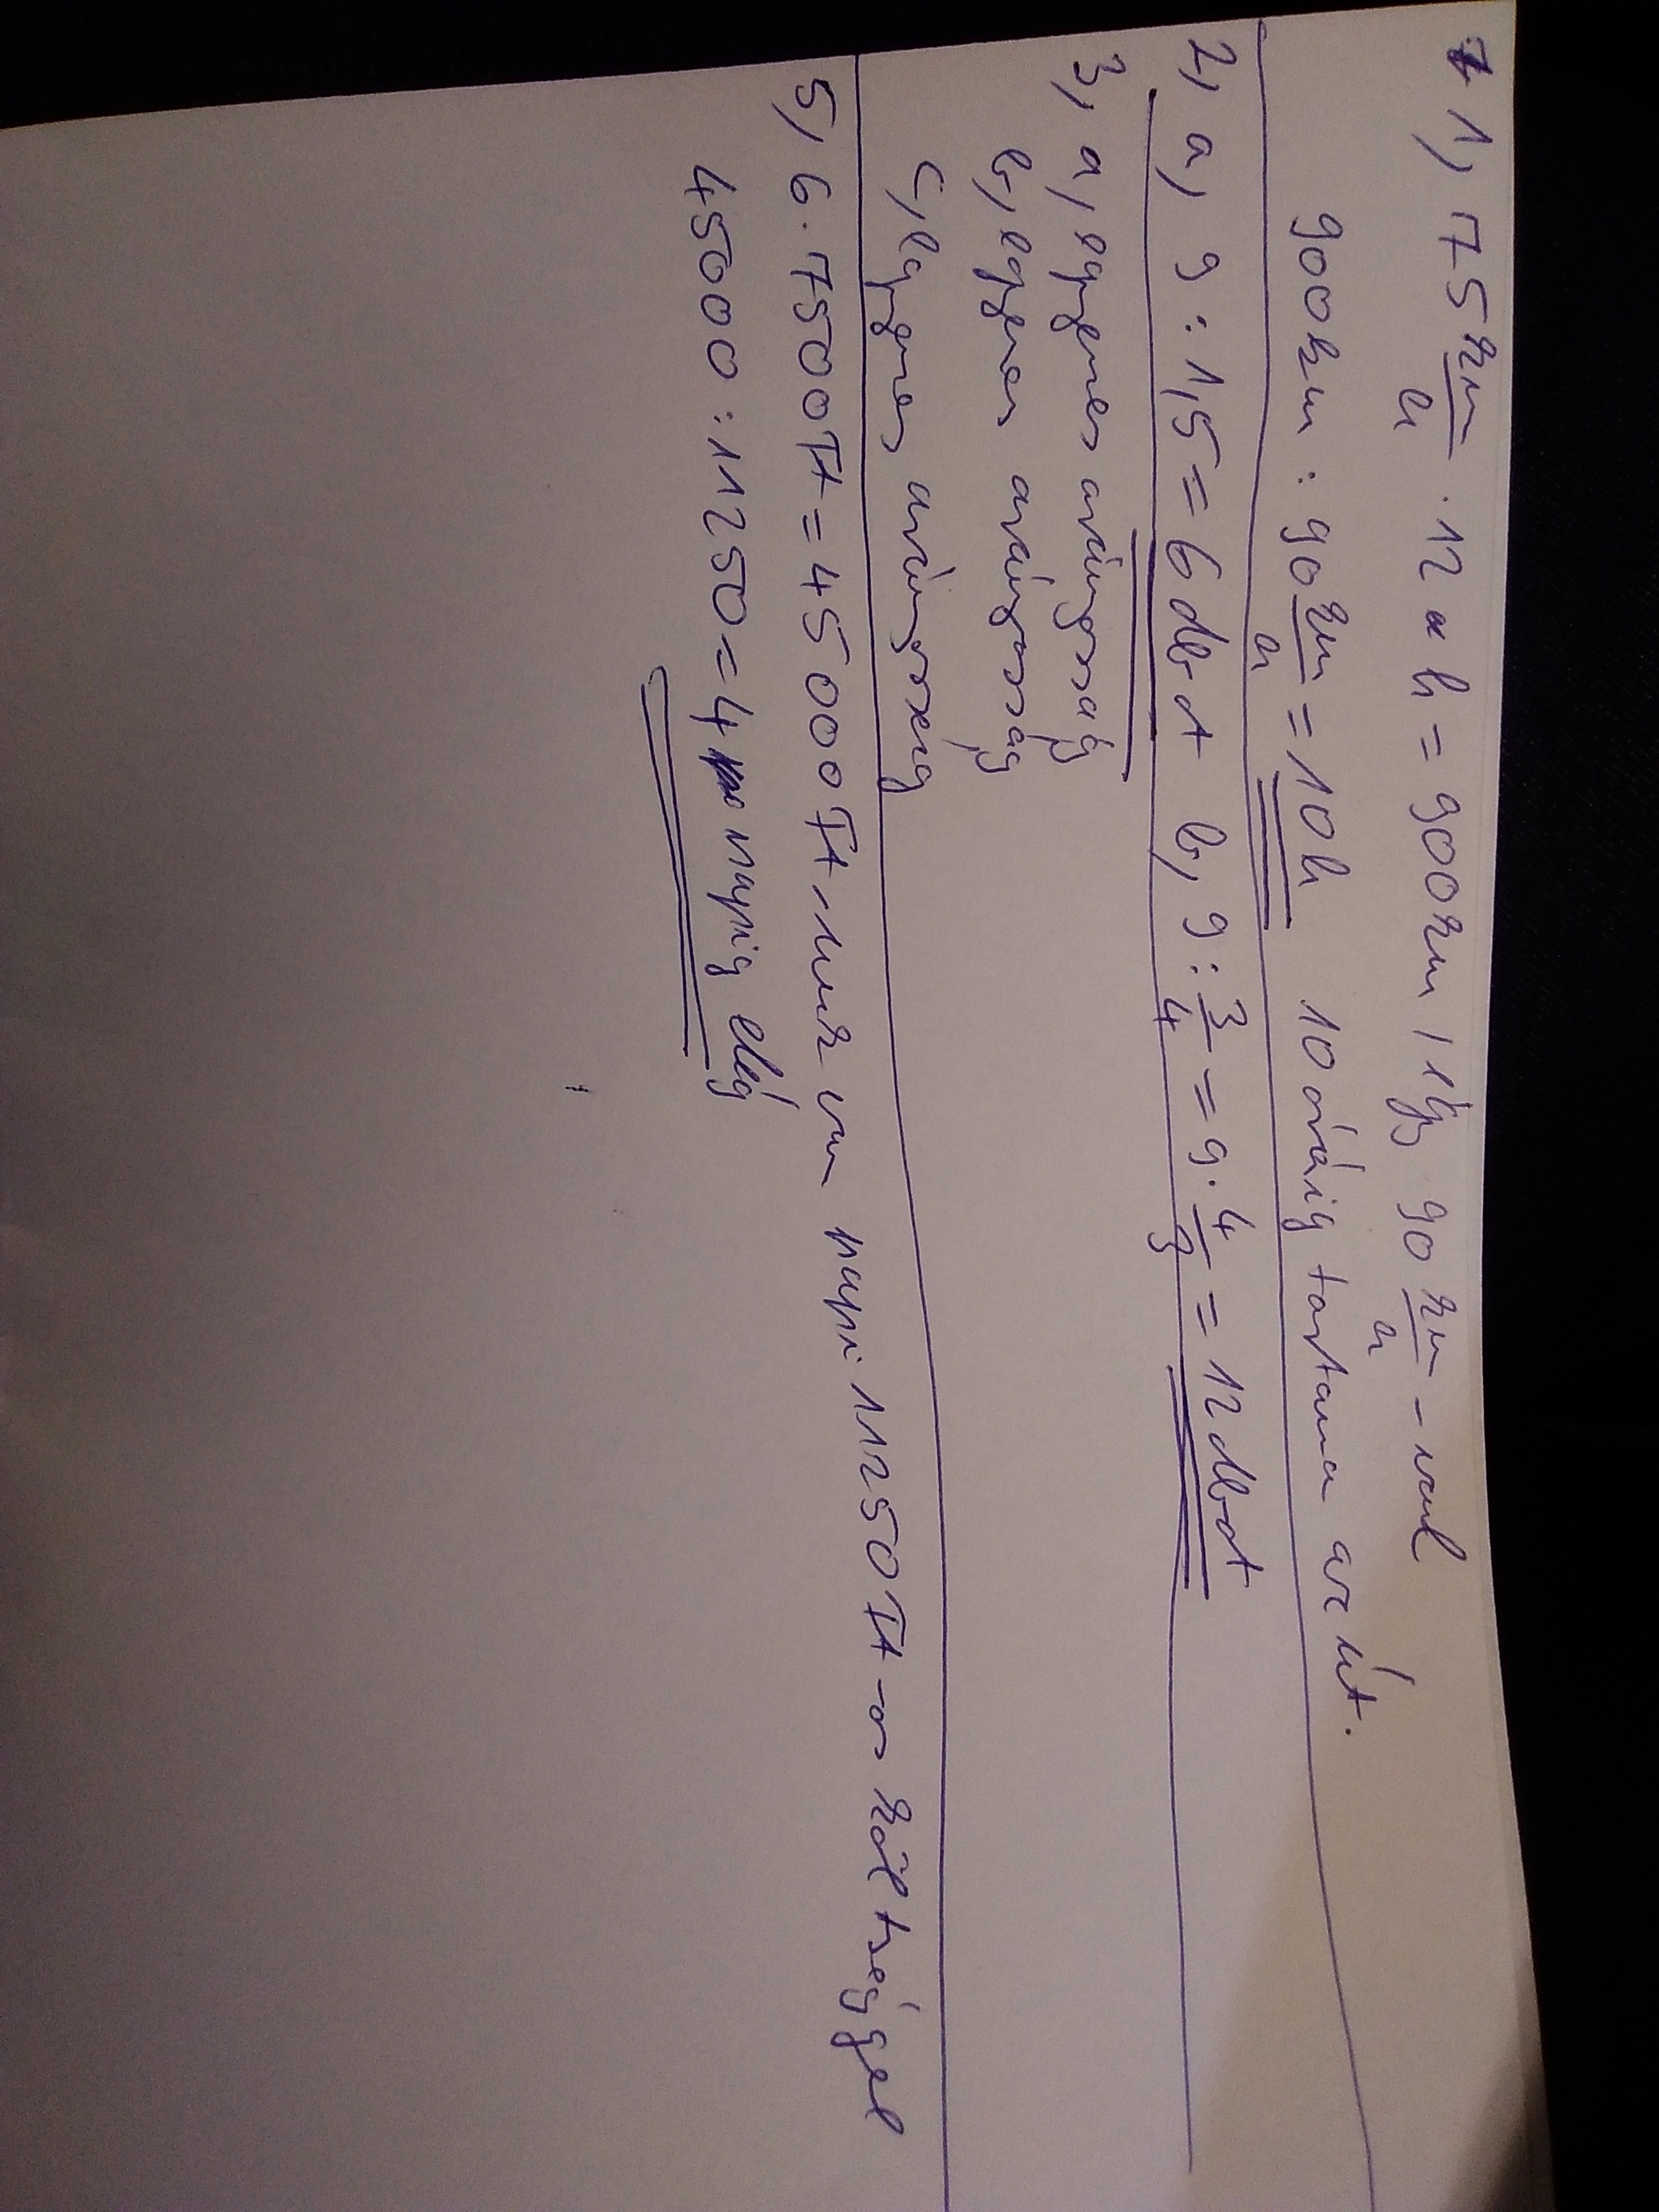 1, 75 km/h · 12 h = 900 km, így 90 km/h - val
900km : 90 km/h = 10h 10 óráig tartana az út.
2, a, 9 : 1,5 = 6 dbot b, 9 : 3/4 = 9 · 4/3 = 12 dbot
3, a, egyenes arányosság
b, egyenes arányosság
c, egyenes arányosság
5, 6 · 7500 Ft = 45000 Ft-unk van napi 11250 Ft-os költséggel
45000 : 11250 = 4 napig elég